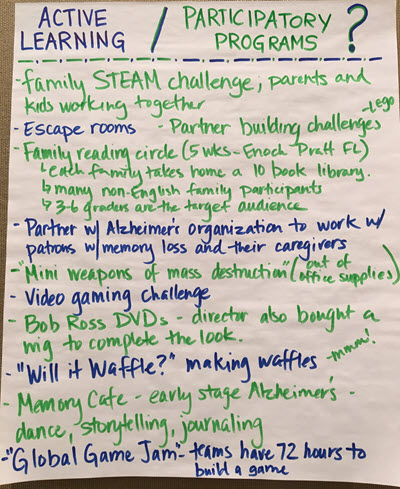 ACTIVE LEARNING / PARTICIPATORY PROGRAMS ?
- family STEAM challenge; parents and
kids working together
- Escape rooms - Partner building challenges - Lego
- Family reading circle (5 wks - Enoch Pratt FL)
↳ each family takes home a 10 book library.
↳ many non-English family participants
↳ 3-6 graders are the target audience
- Partner w/ Alzheimer's organization to work w/
patrons w/ memory loss and their caregivers
- "Mini weapons of mass destruction" (out of office supplies)
- Video gaming challenge
- Bob Ross DVDs - director also bought a
wig to complete the look.
- "Will it Waffle?" making waffles - mmm!
- Memory Cafe - early stage Alzheimer's -
dance, storytelling, journaling
- "Global Game Jam" - teams have 72 hours to
build a game